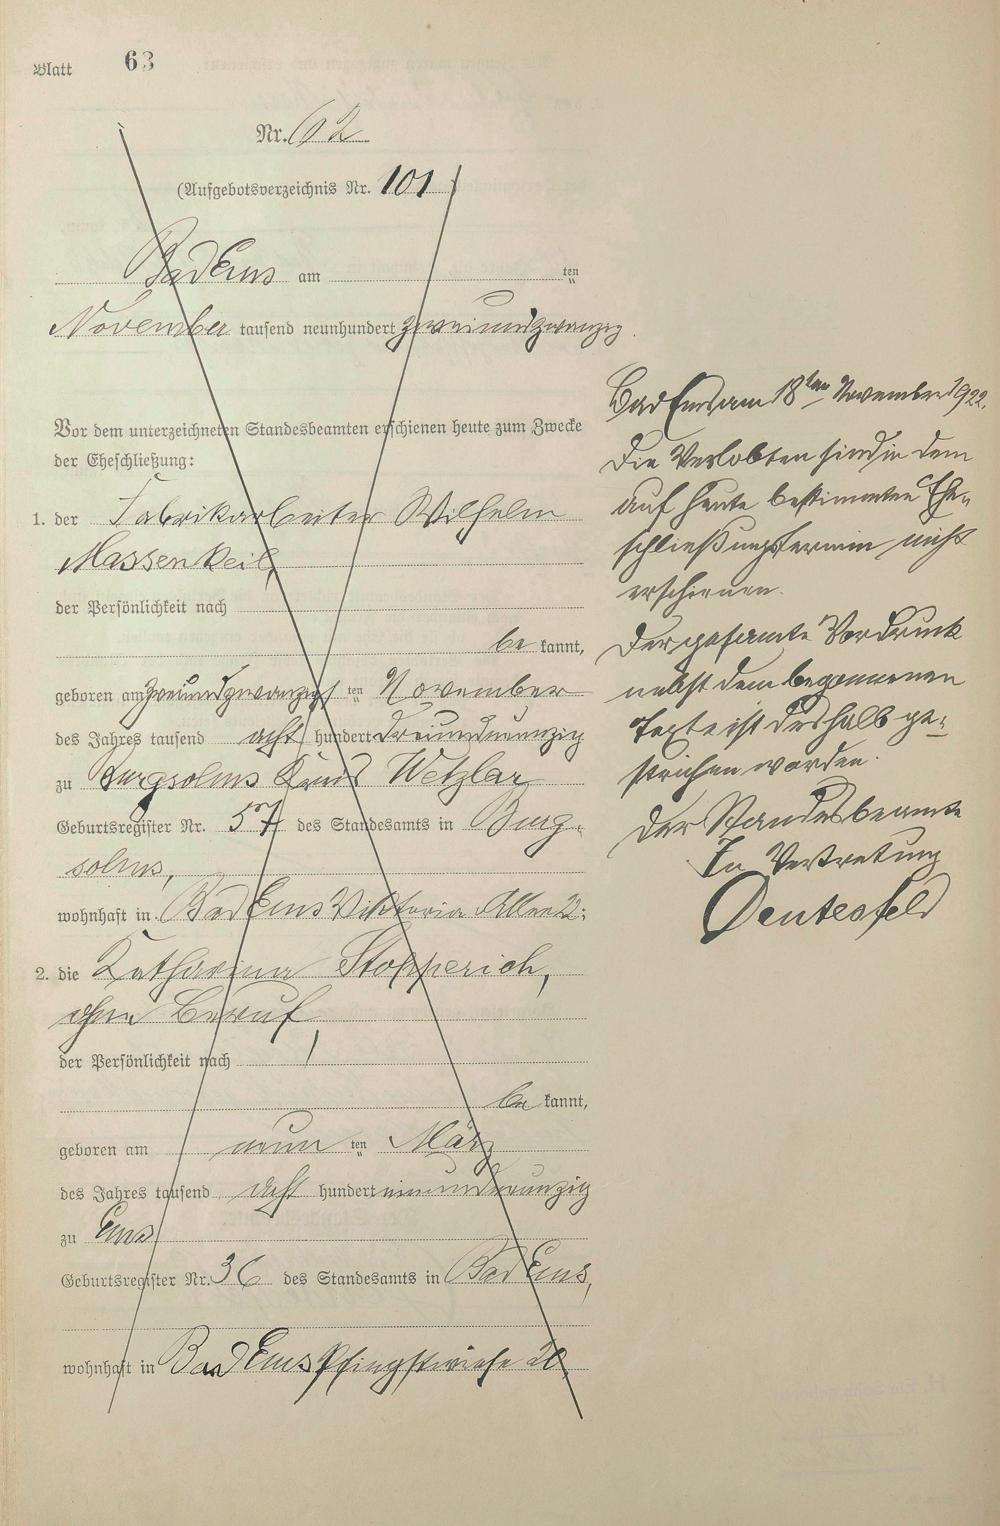 Blatt 63
Nr. 62
(Aufgebotsverzeichnis Nr. 101)
Bad Ems am ten
November tausend neunhundert zweiundzwanzig.
Vor dem unterzeichneten Standesbeamten erschienen heute zum Zwecke
der Eheschließung:
1. der Fabrikarbeiter Wilhelm
Massenkeil,
der Persönlichkeit nach
be kannt,
geboren am zweiundzwanzigsten ten November
des Jahres tausend acht hundert dreiundneunzig
zu Burgsolms Kreis Wetzlar
Geburtsregister Nr. 57 des Standesamts in Burg-
solms,
wohnhaft in Bad Ems Viktoria Allee 22;
2. die Katharina Stopperich,
ohne Beruf,
der Persönlichkeit nach
be kannt,
geboren am neun ten März
des Jahres tausend acht hundert neunundneunzig
zu Ems
Geburtsregister Nr. 36 des Standesamts in Bad Ems,
wohnhaft in Bad Ems Pfingstwiese 20,
Bad Ems am 18ten November 1922.
Die Verlobten sind in dem
auf heute bestimmten Ehe-
schließungstermin nicht
erschienen.
Der gesamte Vordruck
nebst dem begonnenen
Texte ist deshalb ge-
strichen worden.
Der Standesbeamte
In Vertretung